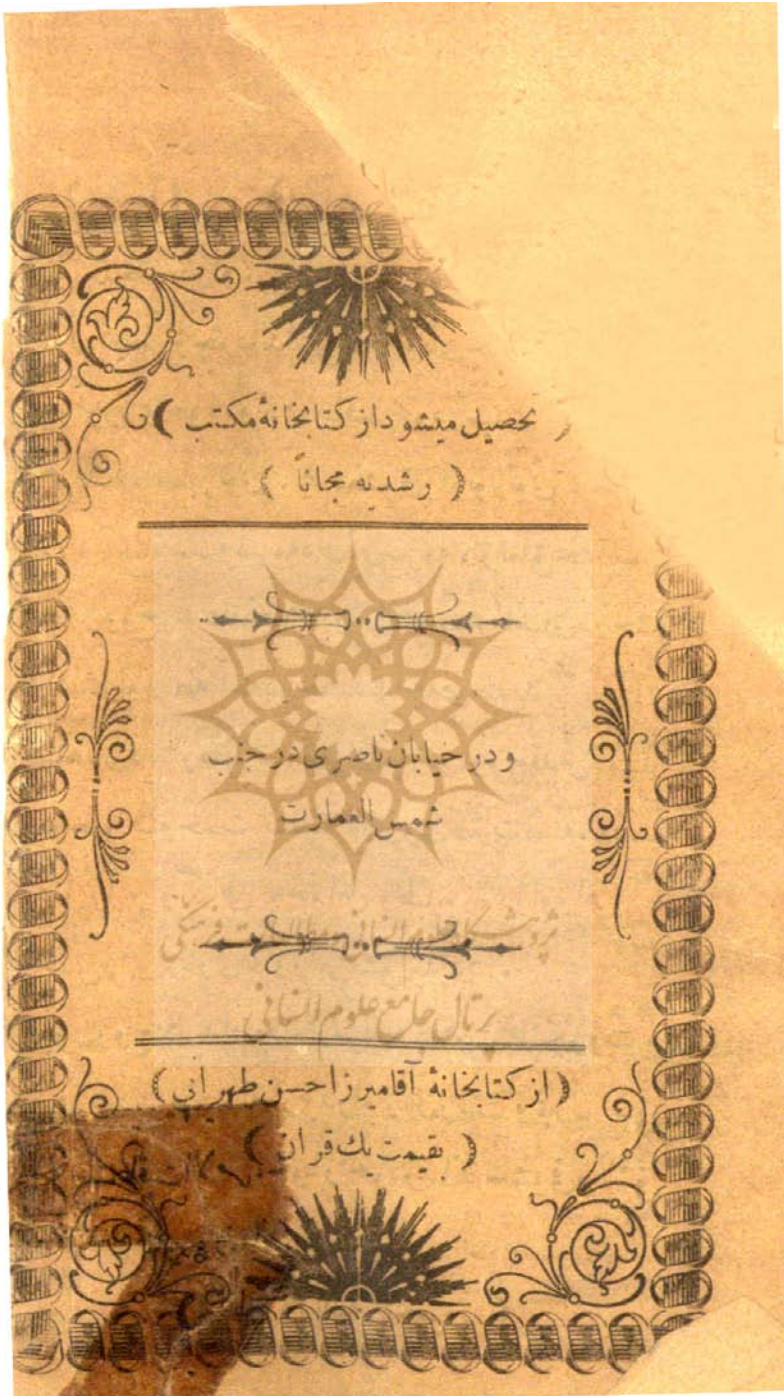 ( تحصیل میشود از کتابخانهٔ مکتب )
( رشدیه مجاناً )
و در خیابان ناصری در جنب
شمس العمارت
پژوهشگاه علوم انسانی و مطالعات فرهنگی
پرتال جامع علوم انسانی
( از کتابخانهٔ آقا میرزا حسن طهرانی )
( بقیمت یك قران )